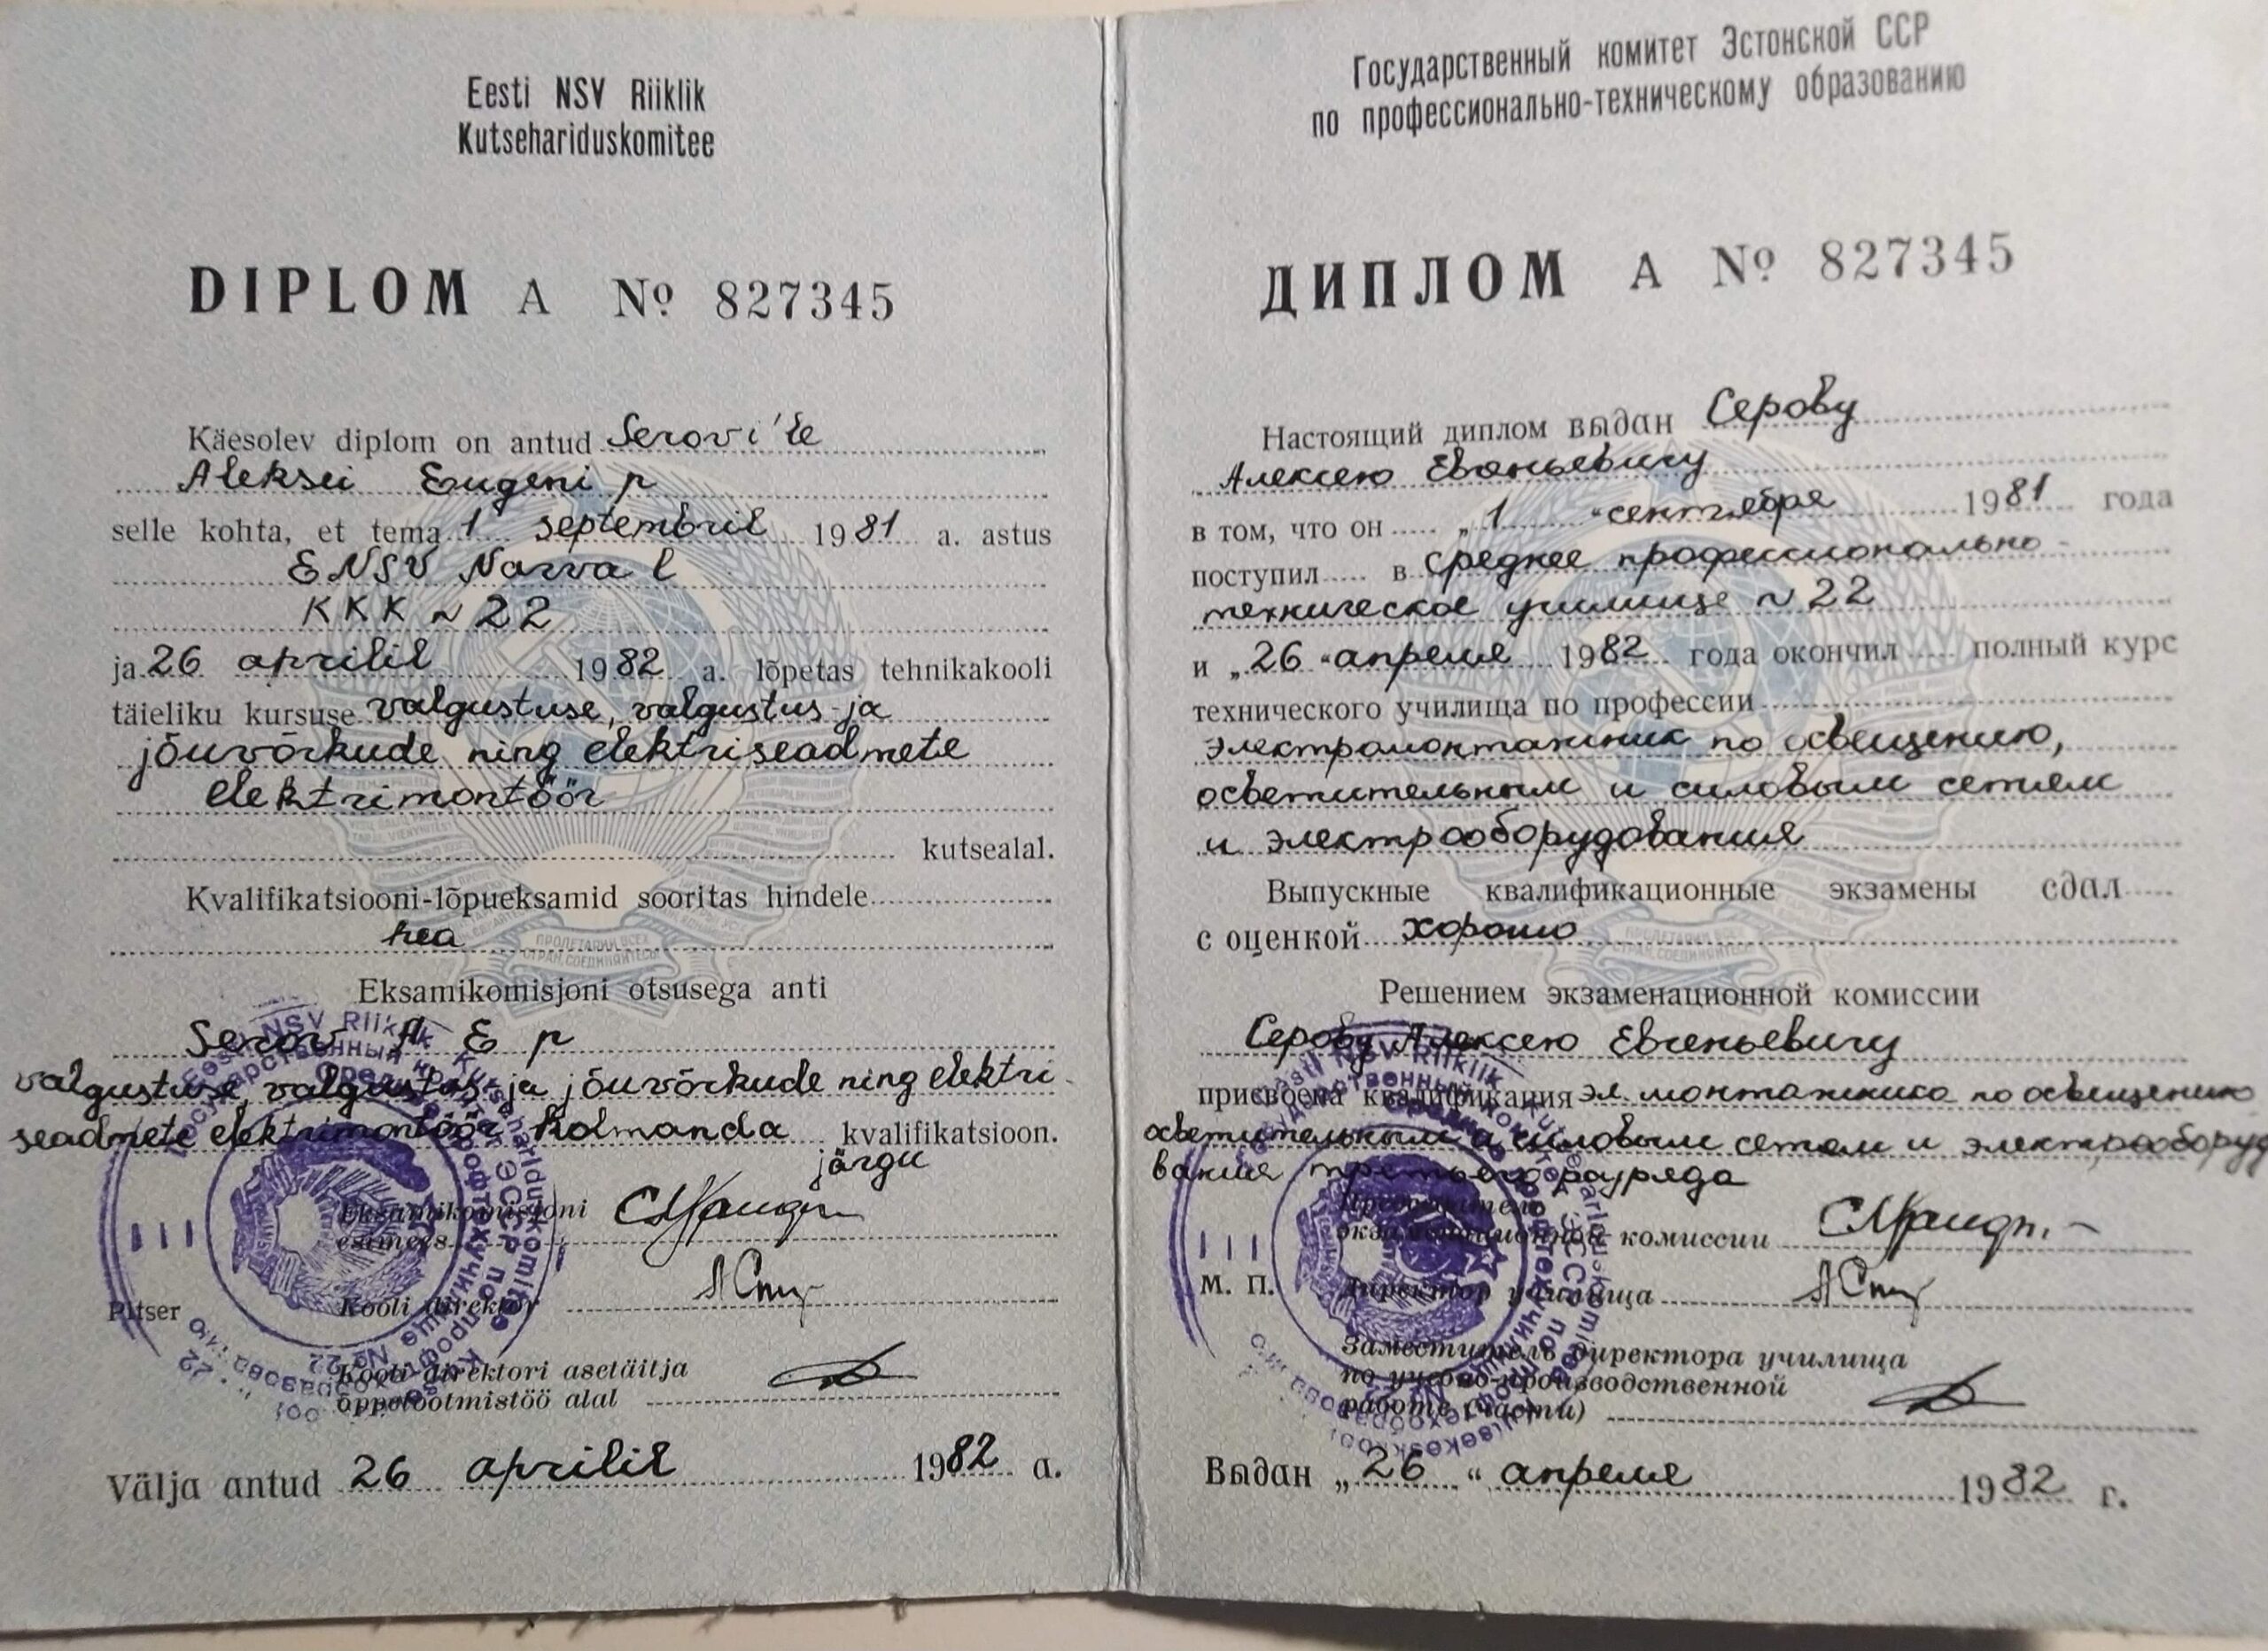 Eesti NSV Riiklik
Kutsehariduskomitee
DIPLOM A № 827345
Käesolev diplom on antud Serovi'le
Aleksei Eugeni p
selle kohta, et tema 1 septembril 1981 a. astus
ENSV Narva l
KKK N 22
ja 26 aprillil 1982 a. lõpetas tehnikakooli
täieliku kursuse valgustuse, valgustus-ja
jõuvõrkude ning elektriseadmete
elektrimontöör
kutsealal.
Kvalifikatsiooni-lõpueksamid sooritas hindele
hea
Eksamikomisjoni otsusega anti
Serov A E p
valgustuse, valgustus-ja jõuvõrkude ning elektri-
seadmete elektrimontöör kolmanda kvalifikatsioon.
järgu
Eksamikomisjoni
esimees
Pitser Kooli direktor
Kooli direktori asetäitja
õppetootmistöö alal
Välja antud 26 aprillil 1982 a.
Государственный комитет Эстонской ССР
по профессионально-техническому образованию
ДИПЛОМ А № 827345
Настоящий диплом выдан Серову
Алексею Евгеньевичу
в том, что он „1 “ сентября 1981 года
поступил в среднее профессионально-
техническое училище N 22
и „26 “ апреля 1982 года окончил полный курс
технического училища по профессии
электромонтажник по освещению,
осветительным и силовым сетям
и электрооборудования
Выпускные квалификационные экзамены сдал
с оценкой хорошо
Решением экзаменационной комиссии
Серову Алексею Евгеньевичу
присвоена квалификация эл.монтажника по освещению
осветительным и силовым сетям и электрооборудо
вания третьего разряда
Председатель
экзаменационной комиссии
М. П. Директор училища
Заместитель директора училища
по учебно-производственной
работе (части)
Выдан „26 “ апреля 1982 г.